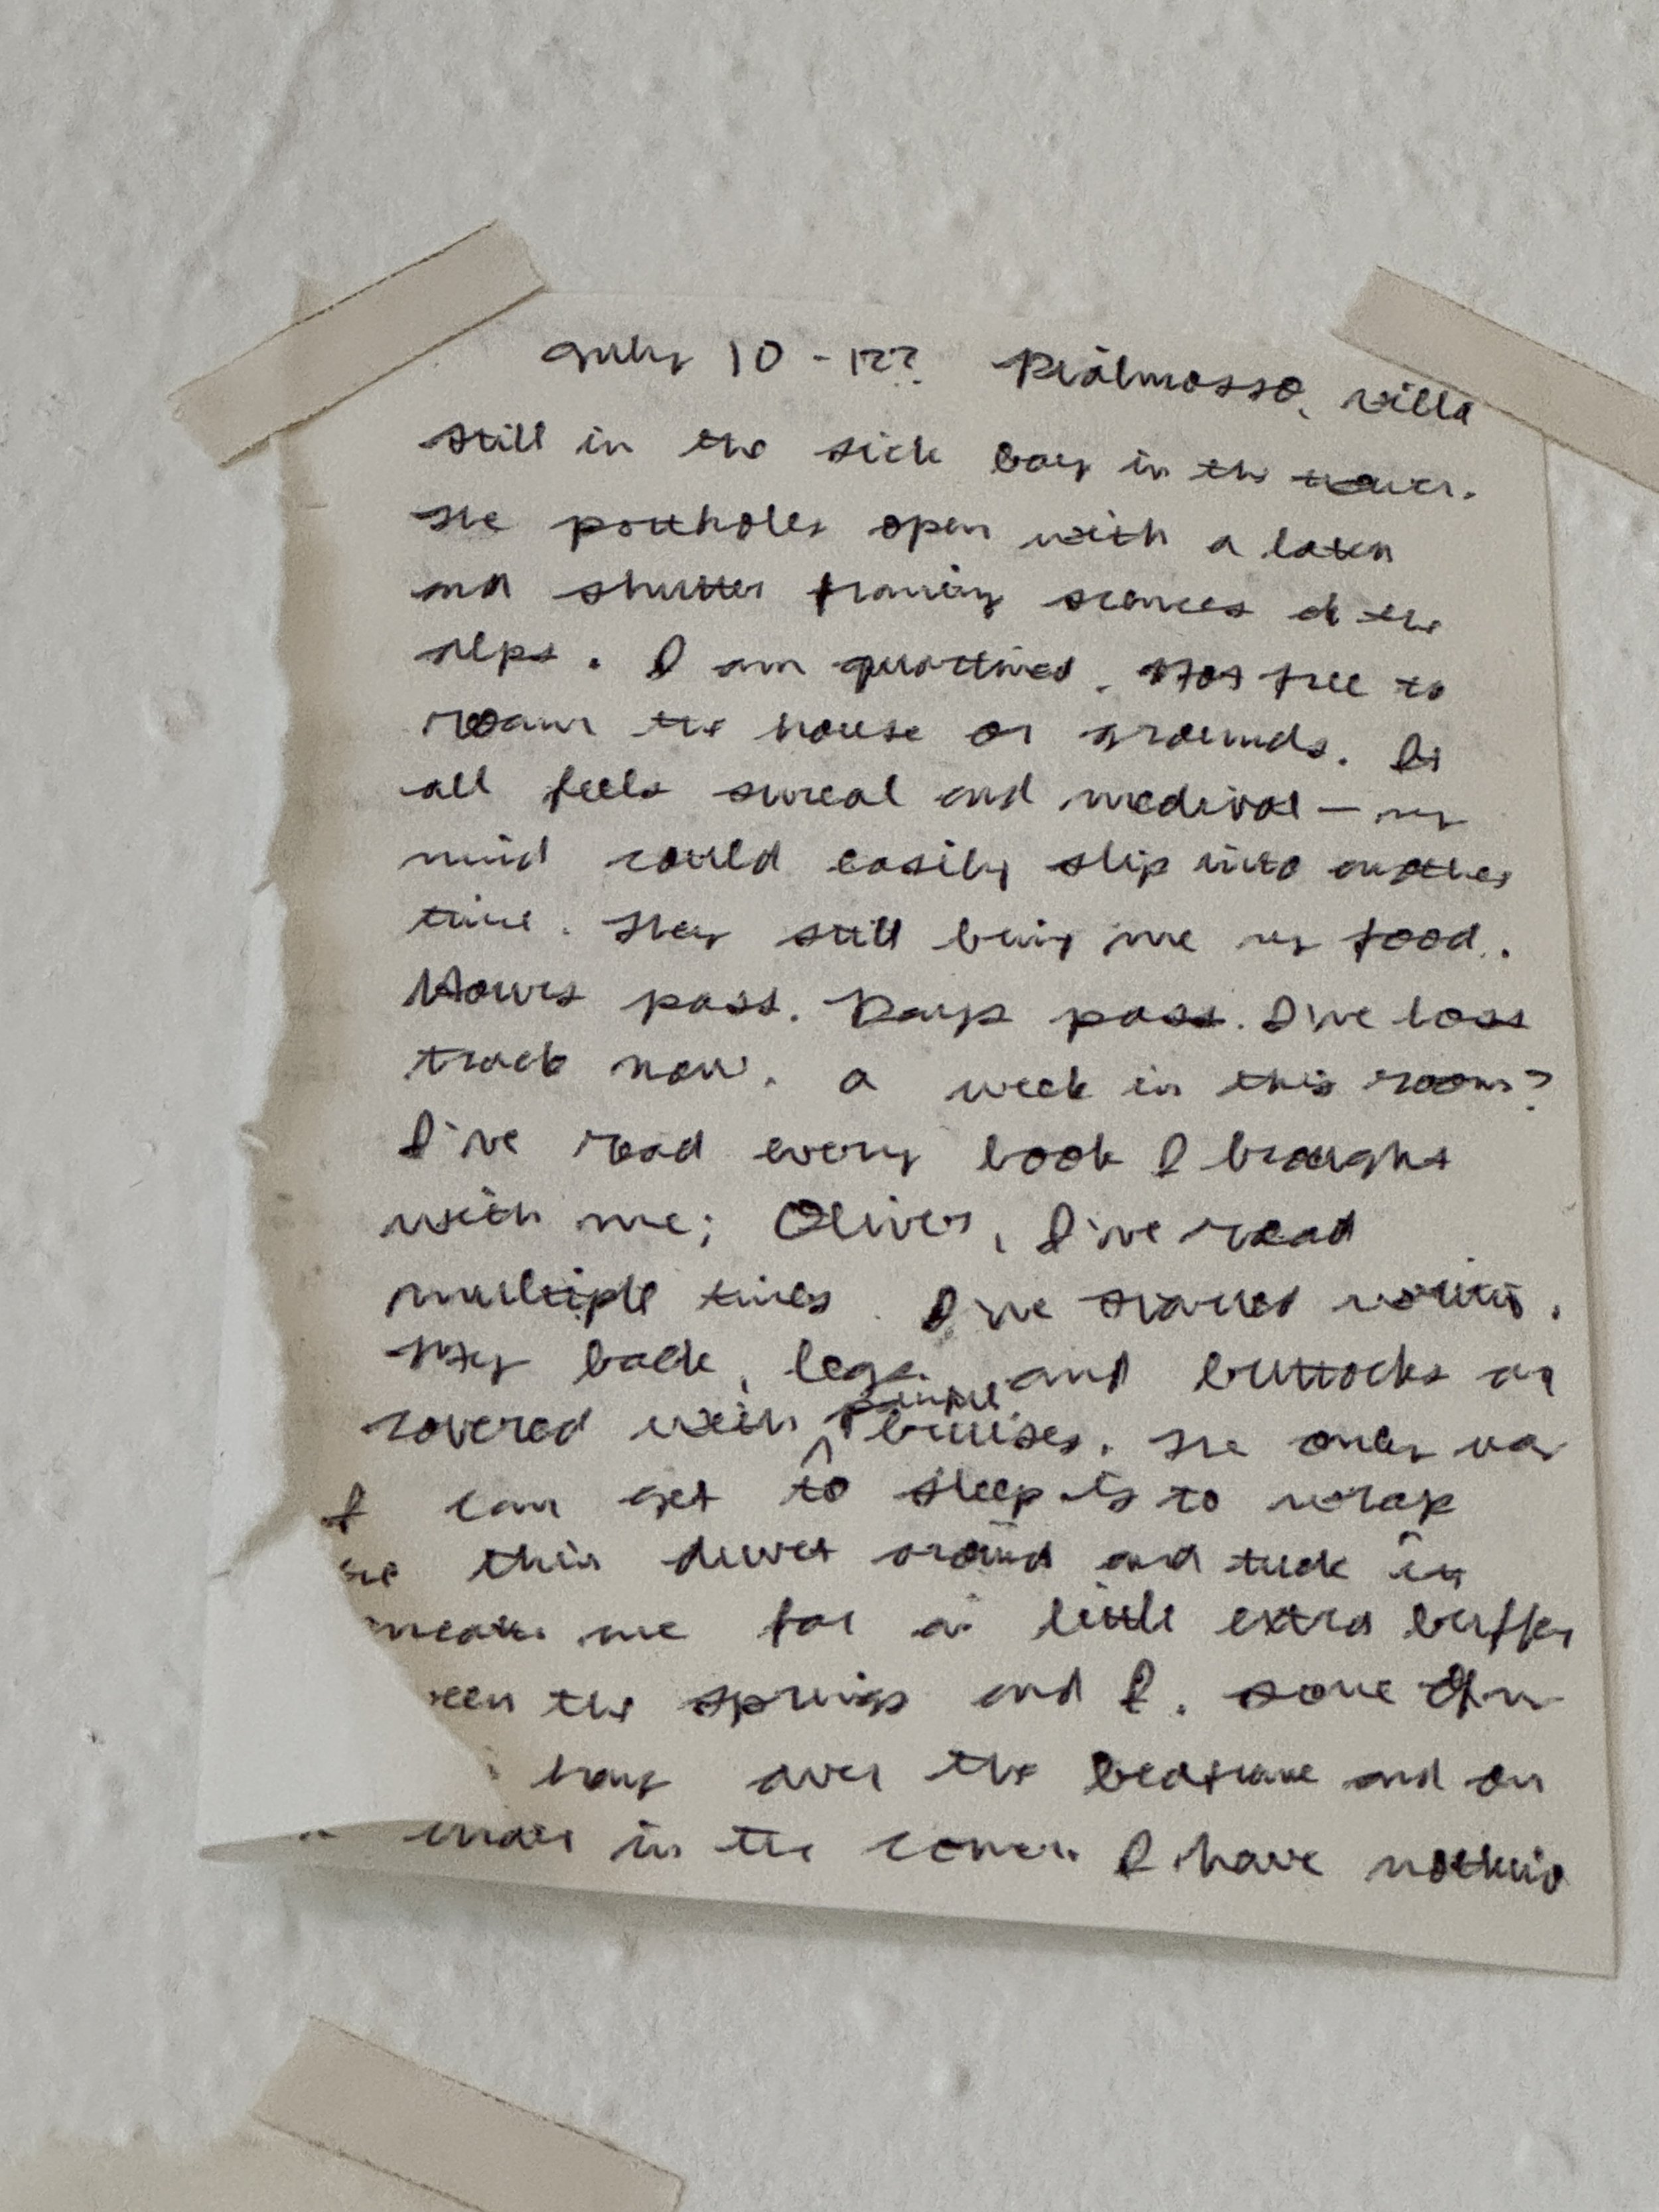 July 10 - 12?? Piàlmosso, villa
still in the sick bay in the tower.
The portholes open with a latch
and shutter framing scences of the
alps. I am quartined. Not free to
roam the house or grounds. It
all feels sureal and medival — my
mind could easily slip into another
time. They still bring me my food.
Hours pass. Days pass. I've loss
track now. a week in this room?
I've read every book I brought
with me; Oliver, I've read
multiple times. I've started writing.
My back, legs and buttocks ar
covered with painful bruises. The only wa
I can get to sleep is to wrap
this duvet around and tuck it
neath me for a little extra buffer
een the springs and I. some of
hang over the bedframe and on
in the corner. I have nothing